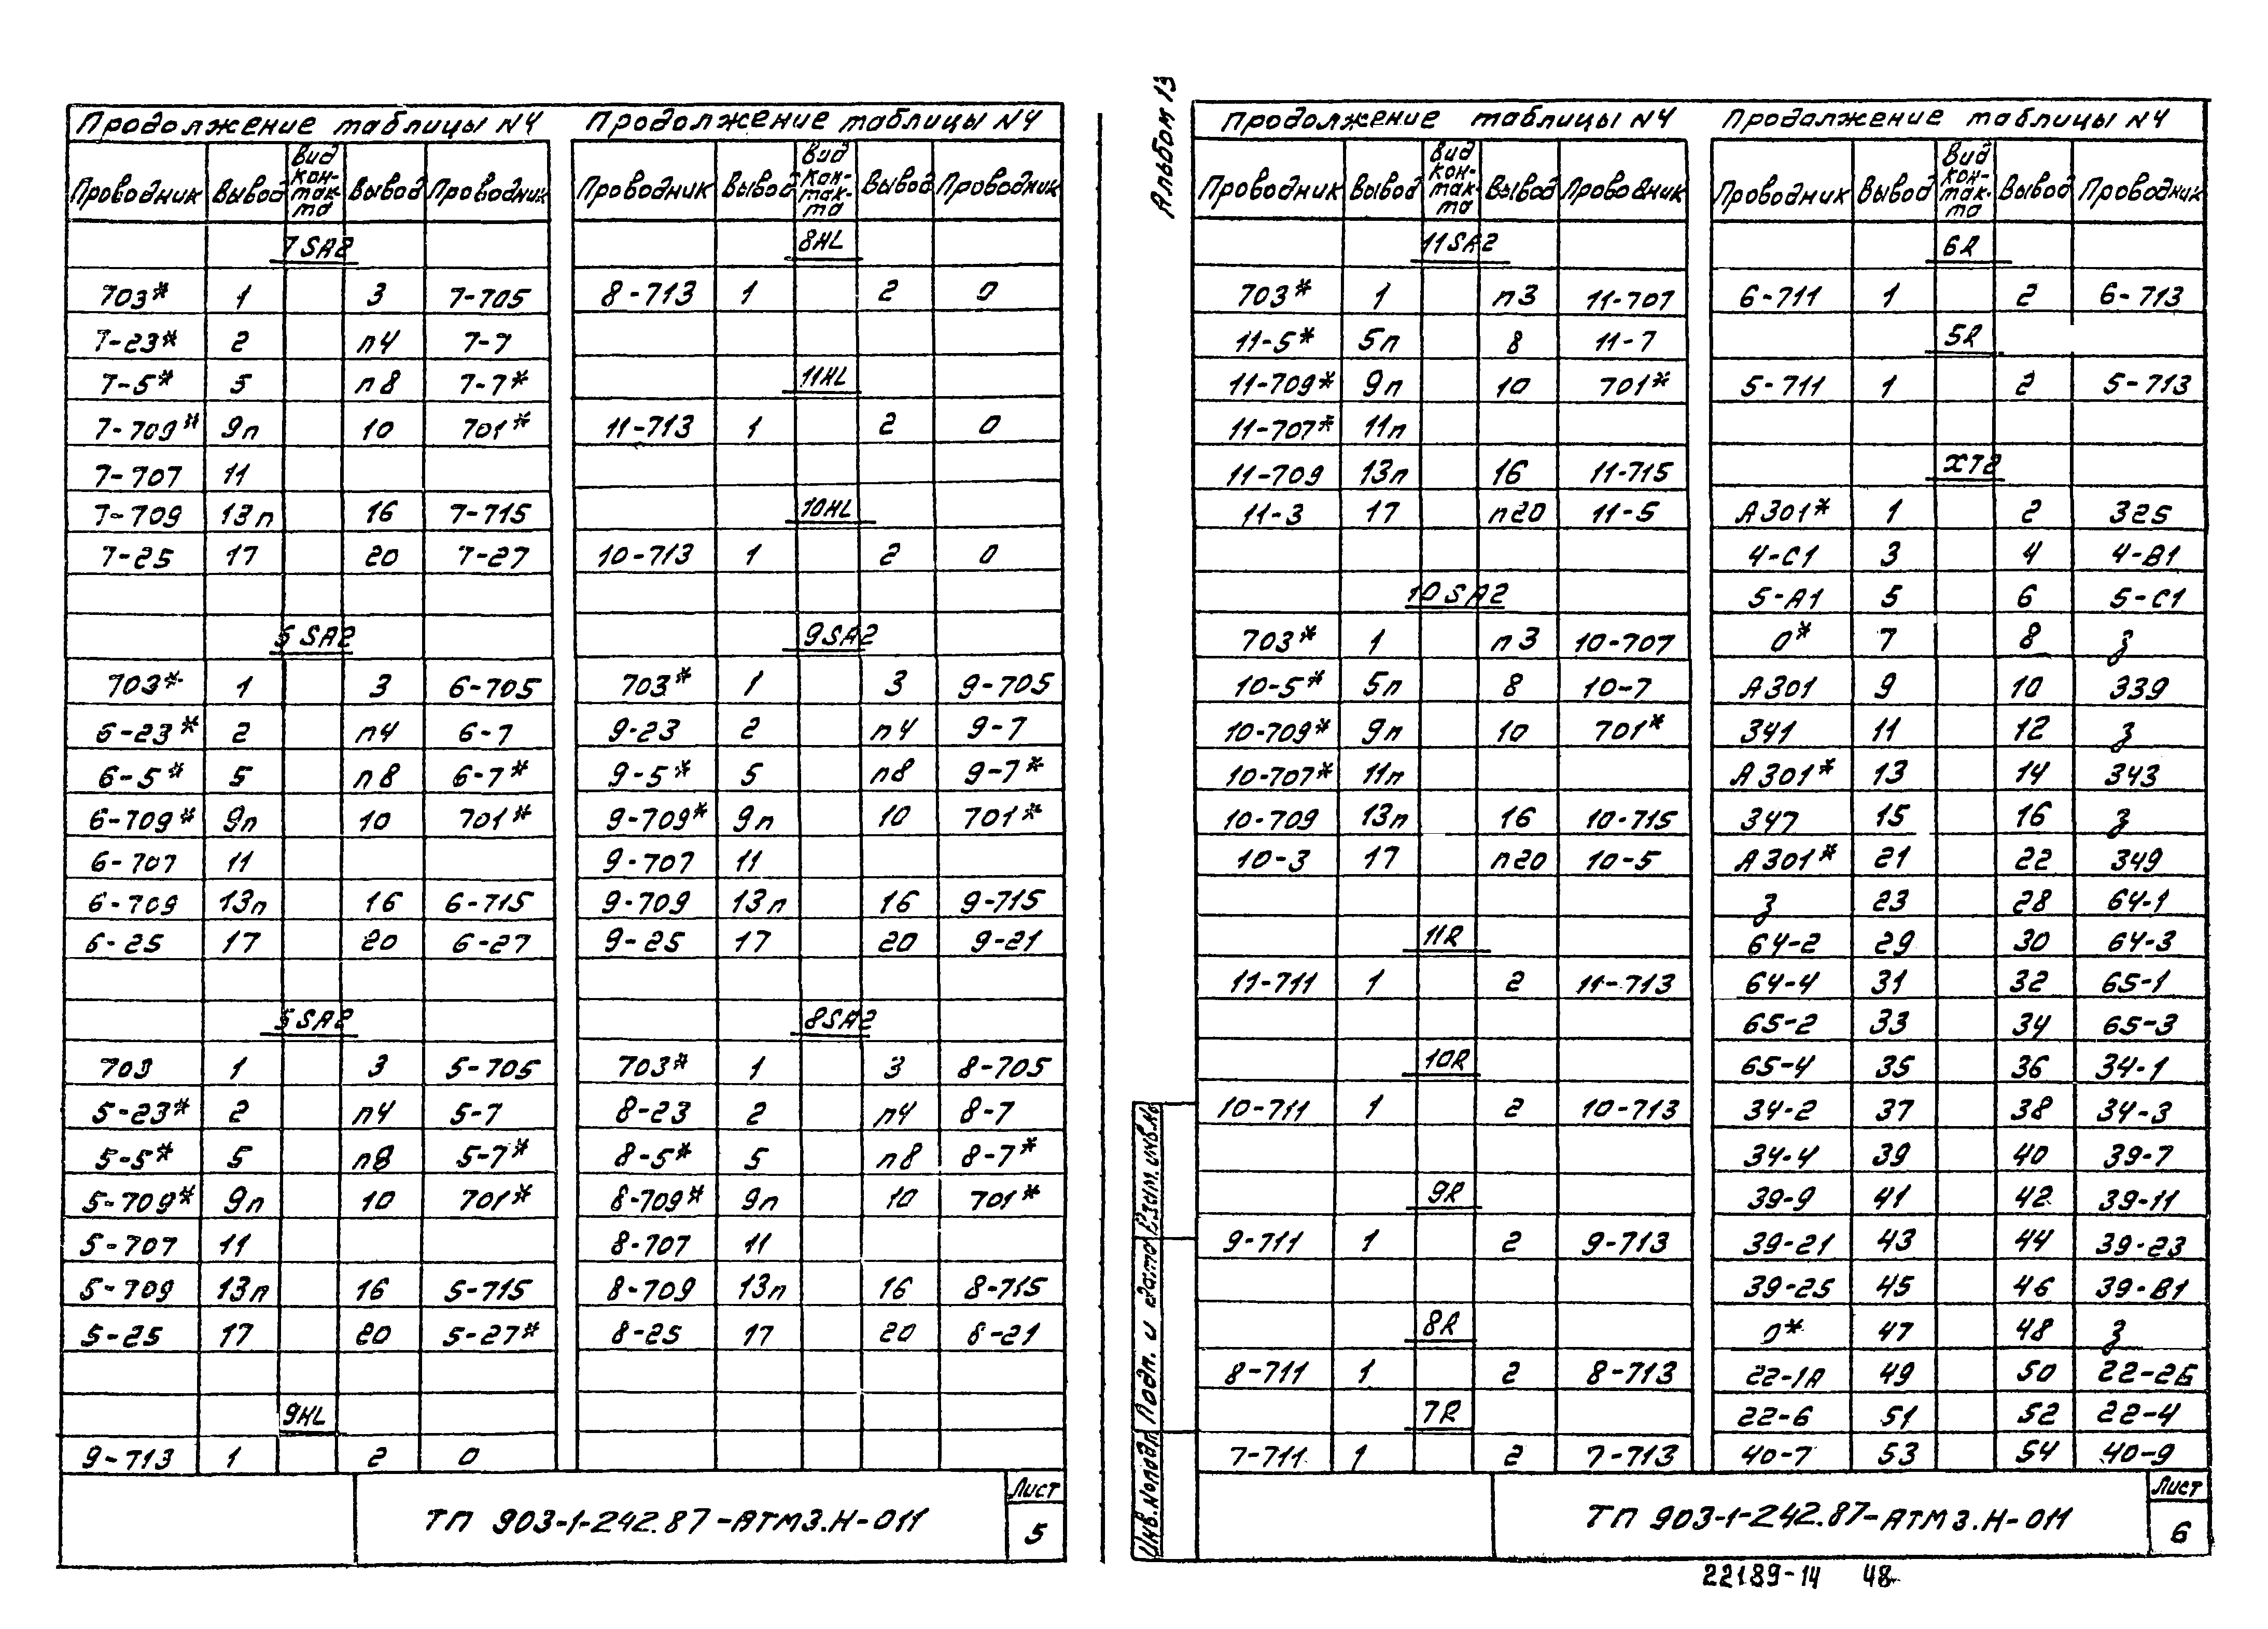 Продолжение таблицы N4
Проводник Вывод Вид кон-так-та Вывод Проводник
7SA2
703* 1 3 7-705
7-23* 2 п4 7-7
7-5* 5 п8 7-7*
7-709* 9п 10 701*
7-707 11
7-709 13п 16 7-715
7-25 17 20 7-27
6SA2
703* 1 3 6-705
6-23* 2 п4 6-7
6-5* 5 п8 6-7*
6-709* 9п 10 701*
6-707 11
6-709 13п 16 6-715
6-25 17 20 6-27
5SA2
703 1 3 5-705
5-23* 2 п4 5-7
5-5* 5 п8 5-7*
5-709* 9п 10 701*
5-707 11
5-709 13п 16 5-715
5-25 17 20 5-27*
9HL
9-713 1 2 0
Продолжение таблицы N4
Проводник Вывод Вид кон-так-та Вывод Проводник
8HL
8-713 1 2 0
11HL
11-713 1 2 0
10HL
10-713 1 2 0
9SA2
703* 1 3 9-705
9-23 2 п4 9-7
9-5* 5 п8 9-7*
9-709* 9п 10 701*
9-707 11
9-709 13п 16 9-715
9-25 17 20 9-21
8SA2
703* 1 3 8-705
8-23 2 п4 8-7
8-5* 5 п8 8-7*
8-709* 9п 10 701*
8-707 11
8-709 13п 16 8-715
8-25 17 20 8-21
ТП 903-1-242.87-АТМ3.Н-011
Лист
5
Альбом 13
Продолжение таблицы N4
Проводник Вывод Вид кон-так-та Вывод Проводник
11SA2
703* 1 п3 11-707
11-5* 5п 8 11-7
11-709* 9п 10 701*
11-707* 11п
11-709 13п 16 11-715
11-3 17 п20 11-5
10SA2
703* 1 п3 10-707
10-5* 5п 8 10-7
10-709* 9п 10 701*
10-707* 11п
10-709 13п 16 10-715
10-3 17 п20 10-5
11R
11-711 1 2 11-713
10R
10-711 1 2 10-713
9R
9-711 1 2 9-713
8R
8-711 1 2 8-713
7R
7-711 1 2 7-713
Продолжение таблицы N4
Проводник Вывод Вид кон-так-та Вывод Проводник
6R
6-711 1 2 6-713
5R
5-711 1 2 5-713
XT2
A301* 1 2 325
4-C1 3 4 4-B1
5-A1 5 6 5-C1
0* 7 8 З
A301 9 10 339
341 11 12 З
A301* 13 14 343
347 15 16 З
A301* 21 22 349
З 23 28 64-1
64-2 29 30 64-3
64-4 31 32 65-1
65-2 33 34 65-3
65-4 35 36 34-1
34-2 37 38 34-3
34-4 39 40 39-7
39-9 41 42 39-11
39-21 43 44 39-23
39-25 45 46 39-B1
0* 47 48 З
22-1А 49 50 22-2Б
22-6 51 52 22-4
40-7 53 54 40-9
Инв.№подл Подп. и дата Взам.инв.№
ТП 903-1-242.87-АТМ3.Н-011
Лист
6
22189-14 48